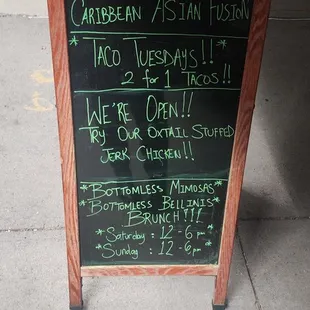 Caribbean Asian Fusion
*Taco Tuesdays!!*
2 for 1 Tacos!!
We're Open!!
Try Our Oxtail Stuffed
Jerk Chicken!!
*Bottomless Mimosas*
*Bottomless Bellinis*
Brunch!!!
*Saturday: 12-6pm*
*Sunday: 12-6pm*